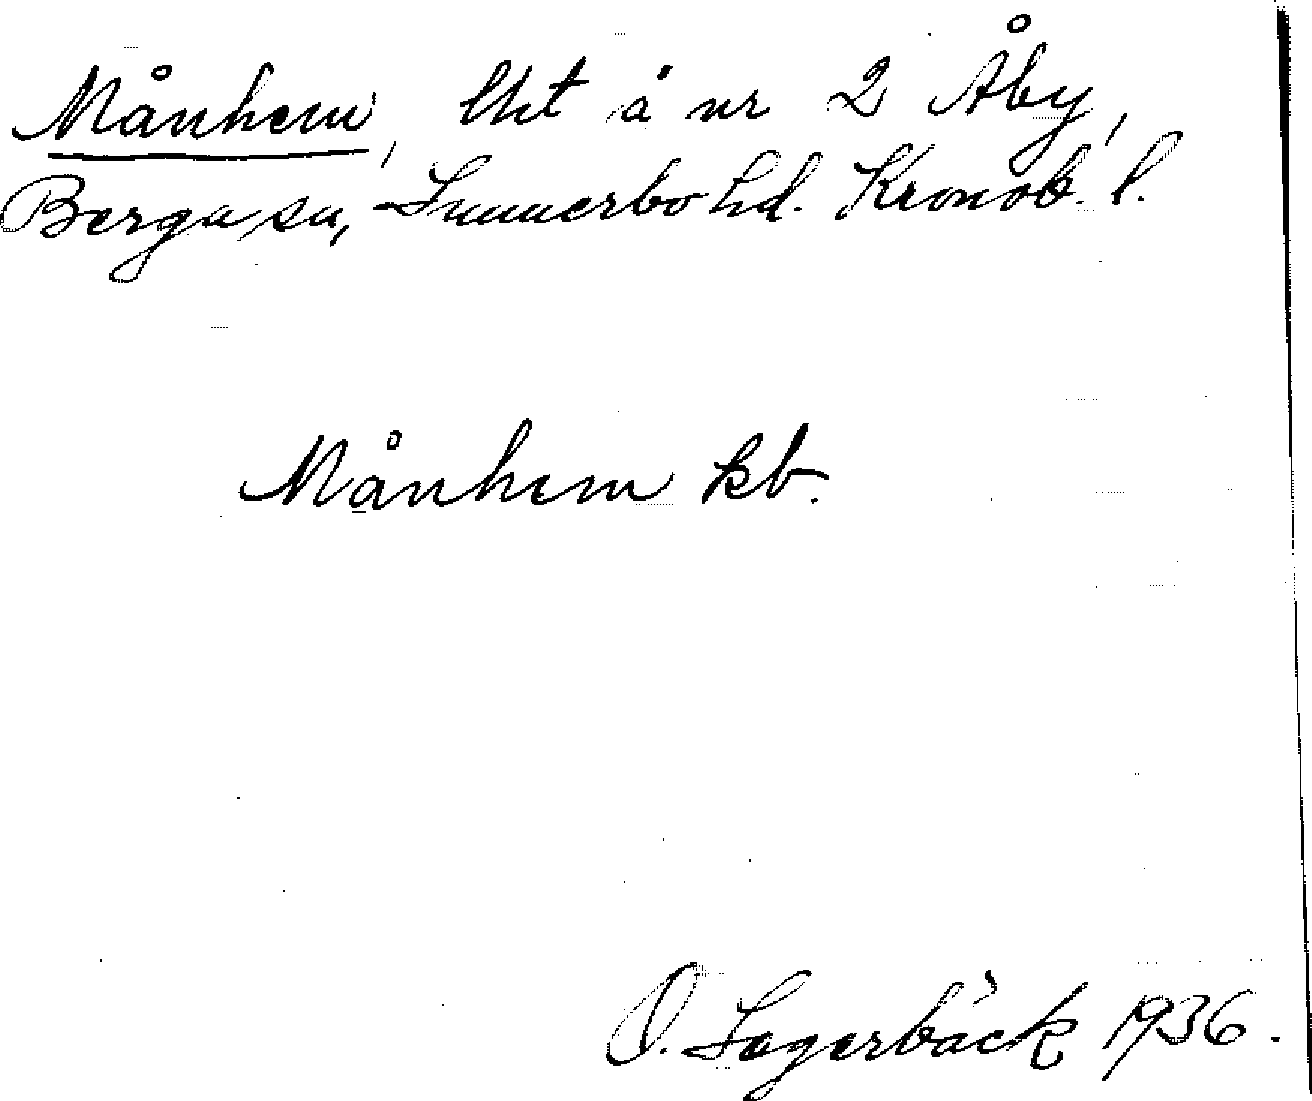 Månhem, lht å nr 2 Åby,
Berga sn, Sunnerbo hd. Kronob. l.
Månhem kb.
O. Lagerbäck 1936.